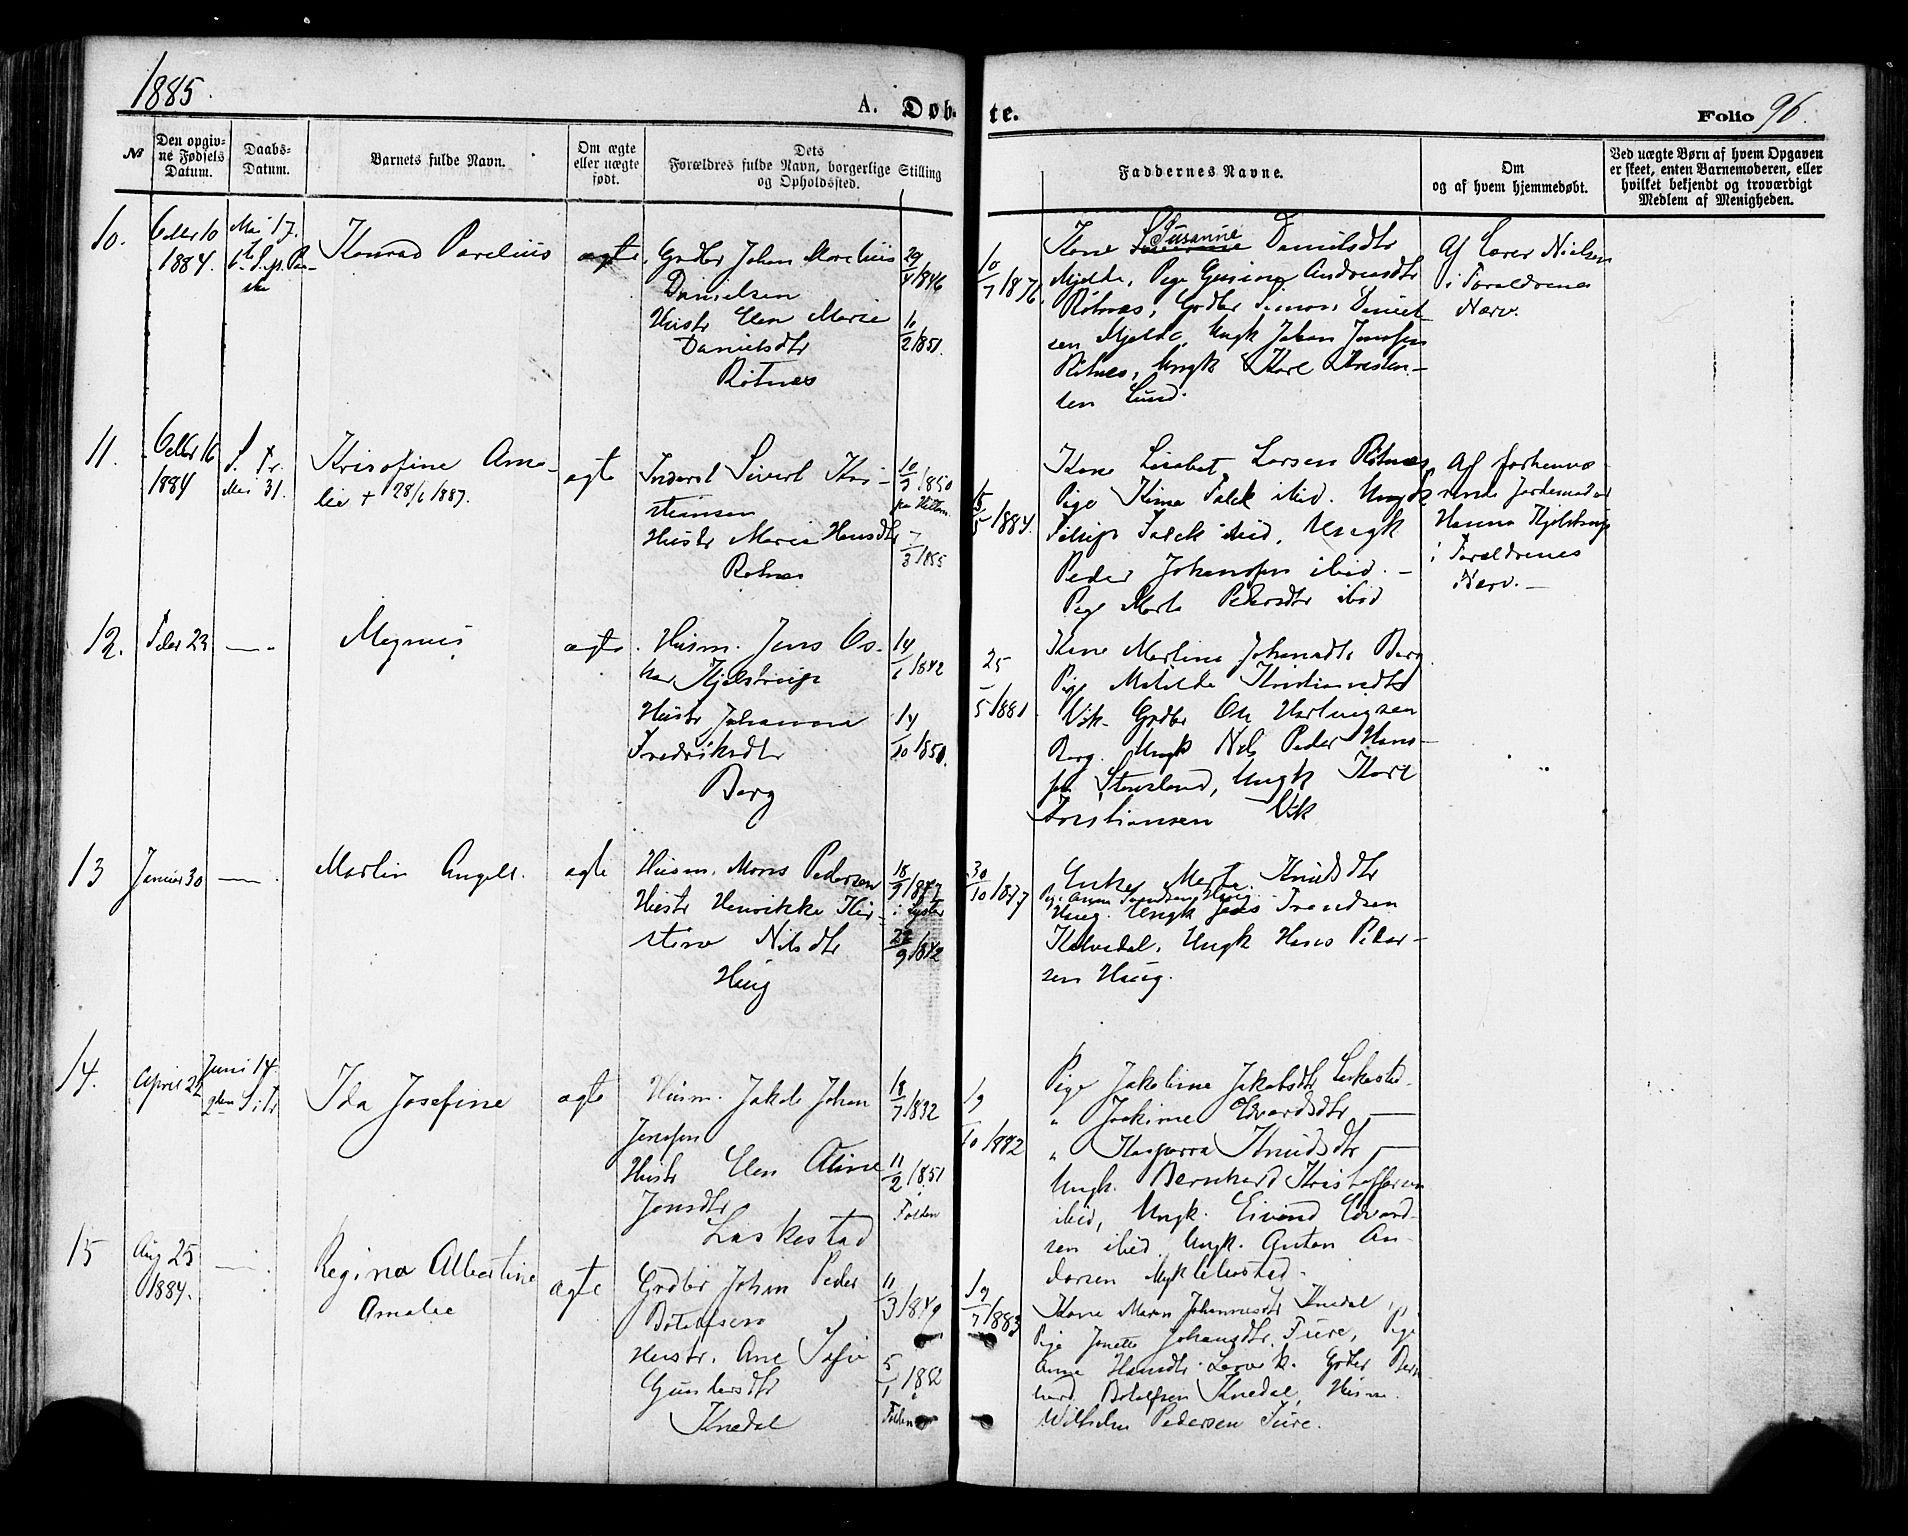 1885.
A. Døb-
te.
Folio 96.
№
Den opgiv-
ne Fødsels
Datum.
Daabs-
Datum.
Barnets fulde Navn.
Om ægte
eller uægte
født.
Dets
Forældres fulde Navn, borgerlige Stilling
og Opholdssted.
Faddernes Navne.
Om
og af hvem hjemmedøbt.
Ved uægte Børn af hvem Opgaven
er skeet, enten Barnemoderen, eller
hvilket bekjendt og troværdigt
Medlem af Menigheden.
10.
Octbr 10
1884.
Mai 17.
Konrad Parelius
ægte
Grdbr Johan Marelius
Danielsen
Hustr Elen Marie
Danielsdtr
Røtnes
29/4 1846
10/2 1851.
10/7 1876
Kone Susanne Danielsdtr
Mjelde, Pige Gusine Andreasdtr
Røtnes, Grdbr Simon Daniel-
sen Mjelde, Ungk Johan Jensen
Røtnes, Ungk Karl Kristen-
sen Lund.
Af Lærer Nielsen
i Forældrenes
Nærv.
11.
Octbr 16
1884
S. Tr.
Mai 31.
Krisofine Ama-
lie + 28/6 1887.
ægte
Inderst Sivert Kri-
stiansen
Hustr Maria Hansdtr
Røtnes
10/3 1850
7/3 1855
15/5 1884.
Kone Lisabet Larsen Røtnes
Pige Kima Falck ibid. Ungk
Fillip Falck ibid, Ungk
Peder Johansen ibid. —
Pige Marta Pedersdtr ibid
Af forhenvæ-
rende Jordemoder
Hanna Kjelstrup
i Forældrenes
Nærv. —
12.
Febr 23
—
Magnus
ægte
Husm. Jens Os-
kar Kjelstrup
Hustr Johanna
Fredriksdtr
Berg
14/1 1842
14/10 1850.
25/5 1881.
Kone Martina Johansdtr Berg.
Pige Matilde Kristiansdtr
Vik. Grdbr Ole Hartvigsen
Berg. Ungk Nels Peder Hans-
sen Stensland, Ungk Karl
Kristiansen Vik
13
Januar 30
—
Martin Angell.
ægte
Husm. Mons Pedersen
Hustr Henrikke Kir-
stine Nilsdtr
Haug
18/9 1847
i Lyster
22/9 1842
30/10 1877
Enke Marte Knudsdtr
Haug. Ungk Jens Trondsen
Kalvedal, Ungk Hans Peder-
sen Haug.
14.
April 22
Juni 14
Ida Josefine
ægte
Husm. Jakob Johan
Jensen
Hustr Elen Oline
Jensdtr
Laskestad
18/7 1832
11/2 1851
i Folden
19/10 1882
Pige Jakobine Jakobsdtr Laskestad
" Joakime Edvardsdtr —
" Kasparra Knudsdtr —
Ungk. Bernhard Kristoffersen
ibid, Ungk. Eivind Edvard-
sen ibid. Ungk. Anton An-
dorsen Myklebostad.
15
Aug 25
1884.
—
Regina Albertine
Amalie
ægte
Grdbr Johan Peder
Botolfsen
Hustr. Ane Sofie
Gundersdtr
Knedal
11/3 1849
5/1 1852
i Folden
19/7 1883
Kone Maren Johannesdtr Knedal,
Pige Jonette Johansdtr Fure, Pige
Anna Hansdtr Lervik. Grdbr Bern-
hard Botolfsen Knedal, Husm.
Wilhelm Pedersen Fure.